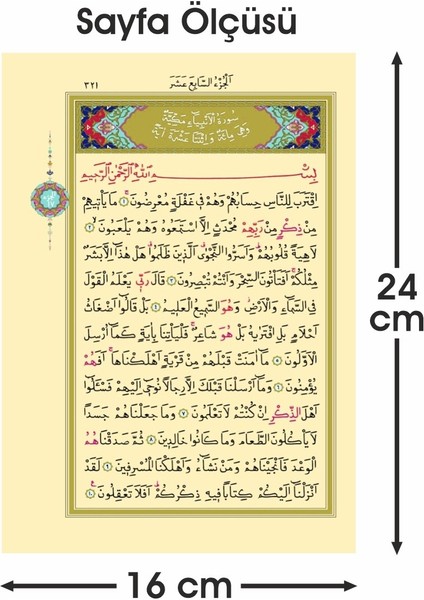 Sayfa Ölçüsü
٣٢١
اَلْجُزْءُ السَّابِعَ عَشَرَ
سُورَةُ الْاَنْبِيَاءِ مَكِّيَّةٌ
وَهِيَ مِائَةٌ وَاِثْنَتَا عَشْرَةَ اٰيَةً
بِسْمِ اللّٰهِ الرَّحْمٰنِ الرَّحِيمِ
اِقْتَرَبَ لِلنَّاسِ حِسَابُهُمْ وَهُمْ فِي غَفْلَةٍ مُعْرِضُونَ ١ مَا يَاْتِيهِمْ
مِنْ ذِكْرٍ مِنْ رَبِّهِمْ مُحْدَثٍ اِلَّا اسْتَمَعُوهُ وَهُمْ يَلْعَبُونَ ٢
لَاهِيَةً قُلُوبُهُمْ وَاَسَرُّوا النَّجْوَى الَّذِينَ ظَلَمُوا هَلْ هٰذَا اِلَّا بَشَرٌ
مِثْلُكُمْ اَفَتَاْتُونَ السِّحْرَ وَاَنْتُمْ تُبْصِرُونَ ٣ قَالَ رَبِّي يَعْلَمُ الْقَوْلَ
فِي السَّمَاءِ وَالْاَرْضِ وَهُوَ السَّمِيعُ الْعَلِيمُ ٤ بَلْ قَالُوا اَضْغَاثُ
اَحْلَامٍ بَلِ افْتَرٰيهُ بَلْ هُوَ شَاعِرٌ فَلْيَاْتِنَا بِاٰيَةٍ كَمَا اُرْسِلَ
الْاَوَّلُونَ ٥ مَا اٰمَنَتْ قَبْلَهُمْ مِنْ قَرْيَةٍ اَهْلَكْنَاهَا اَفَهُمْ
يُؤْمِنُونَ ٦ وَمَا اَرْسَلْنَا قَبْلَكَ اِلَّا رِجَالًا نُوحِي اِلَيْهِمْ فَسْـَٔلُوا
اَهْلَ الذِّكْرِ اِنْ كُنْتُمْ لَا تَعْلَمُونَ ٧ وَمَا جَعَلْنَاهُمْ جَسَدًا
لَا يَاْكُلُونَ الطَّعَامَ وَمَا كَانُوا خَالِدِينَ ٨ ثُمَّ صَدَقْنَاهُمُ
الْوَعْدَ فَاَنْجَيْنَاهُمْ وَمَنْ نَشَاءُ وَاَهْلَكْنَا الْمُسْرِفِينَ ٩ لَقَدْ
اَنْزَلْنَا اِلَيْكُمْ كِتَابًا فِيهِ ذِكْرُكُمْ اَفَلَا تَعْقِلُونَ ١٠
24
cm
16 cm